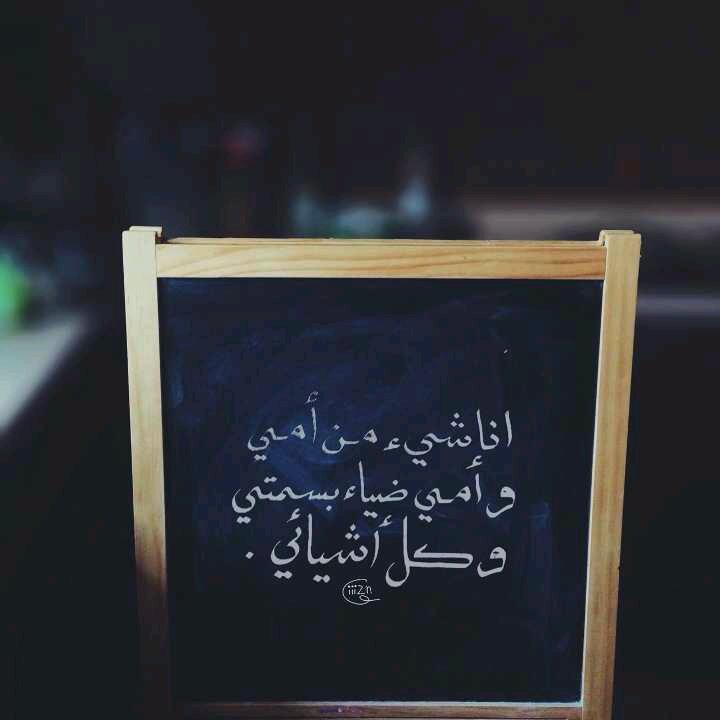 انا شيء من أمي
و أمي ضياء بسمتي
و كل أشيائي .
iiizn